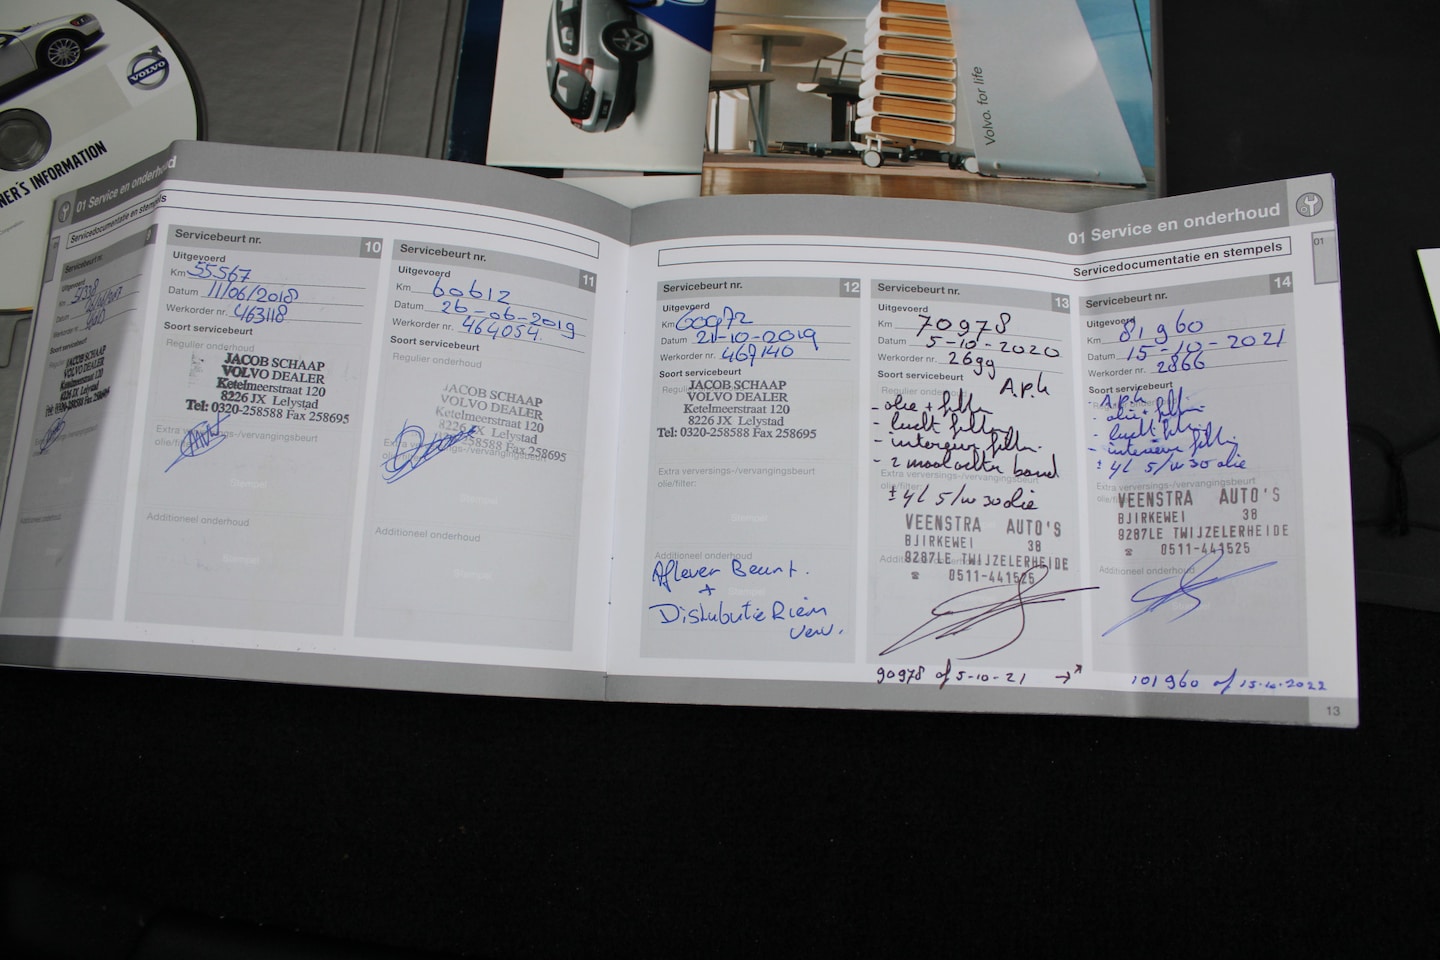 VOLVO
NER'S INFORMATION
Volvo. for life
01 Service en onderhoud
Servicedocumentatie en stempels
9
Servicebeurt nr.
Uitgevoerd
Km
Datum
Werkorder nr.
JACOB SCHAAP
VOLVO DEALER
Ketelmeerstraat 120
8226 JX Lelystad
Servicebeurt nr. 10
Uitgevoerd
Km 55567
Datum 11/06/2018
Werkorder nr. 463118
Soort servicebeurt
Regulier onderhoud
JACOB SCHAAP
VOLVO DEALER
Ketelmeerstraat 120
8226 JX Lelystad
Tel: 0320-258588 Fax 258695
Extra verversings-/vervangingsbeurt
olie/filter:
Stempel
Additioneel onderhoud
Stempel
Servicebeurt nr. 11
Uitgevoerd
Km 60612
Datum 26-06-2019
Werkorder nr. 464054
Soort servicebeurt
Regulier onderhoud
JACOB SCHAAP
VOLVO DEALER
Ketelmeerstraat 120
8226 JX Lelystad
Tel: 0320-258588 Fax 258695
Stempel
Additioneel onderhoud
Stempel
01 Service en onderhoud
Servicedocumentatie en stempels
01
Servicebeurt nr. 12
Uitgevoerd
Km 60972
Datum 21-10-2019
Werkorder nr. 467140
Soort servicebeurt
JACOB SCHAAP
VOLVO DEALER
Ketelmeerstraat 120
8226 JX Lelystad
Tel: 0320-258588 Fax 258695
Extra verversings-/vervangingsbeurt
olie/filter:
Stempel
Additioneel onderhoud
Aflever Beurt.
+
Distributie Riem
verv.
Servicebeurt nr. 13
Uitgevoerd
Km 70978
Datum 5-10-2020
Werkorder nr. 2699
Soort servicebeurt A.p.k
- olie + filter
- lucht filter
- interieur filter
- 2 maal achter band
± 4l 5/w30 olie
VEENSTRA AUTO'S
BJIRKEWEI 38
9287LE TWIJZELERHEIDE
☎ 0511-441525
Additioneel onderhoud
90978 of 5-10-21 →
Servicebeurt nr. 14
Uitgevoerd
Km 81960
Datum 15-10-2021
Werkorder nr. 2866
Soort servicebeurt
- A.p.k
- olie + filter
- lucht filter
- interieur filter
± 4l 5/w30 olie
Extra verversings-/vervangingsbeurt
VEENSTRA AUTO'S
BJIRKEWEI 38
9287LE TWIJZELERHEIDE
☎ 0511-441525
Additioneel onderhoud
Stempel
101960 of 15-10-2022
13